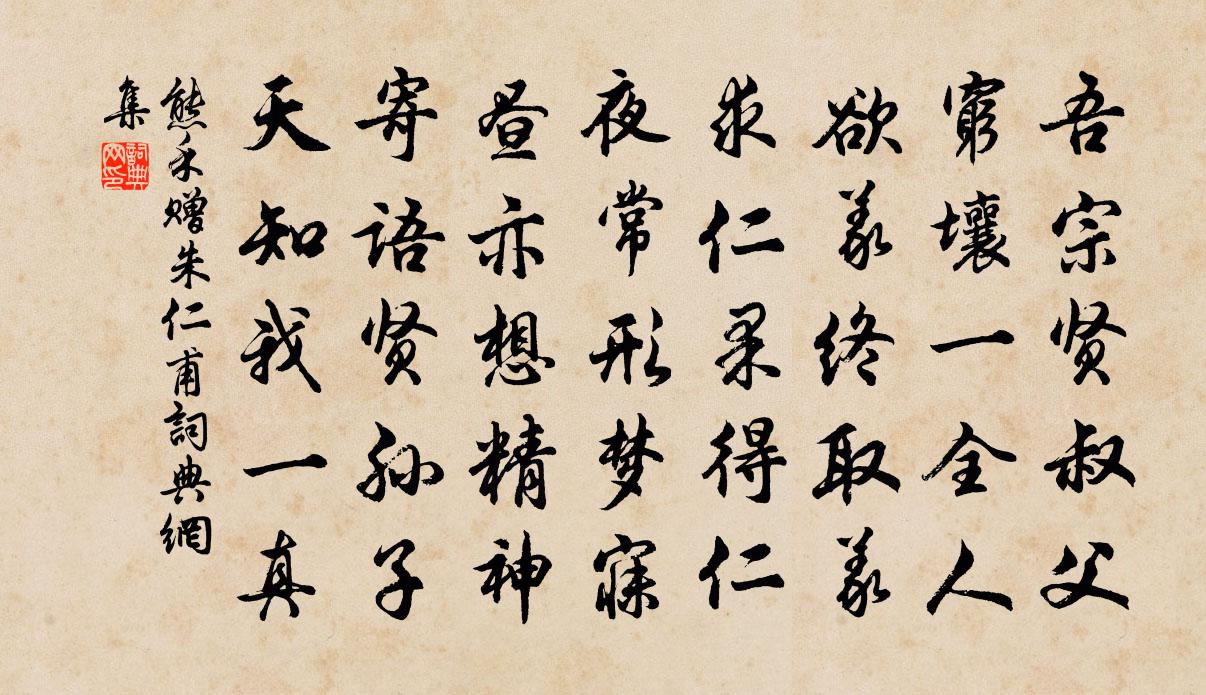 吾宗贤叔父
穷壤一全人
欲义终取义
求仁果得仁
夜常形梦寐
昼亦想精神
寄语贤孙子
天知我一真
熊禾赠朱仁甫詞典網
集
詞典网印